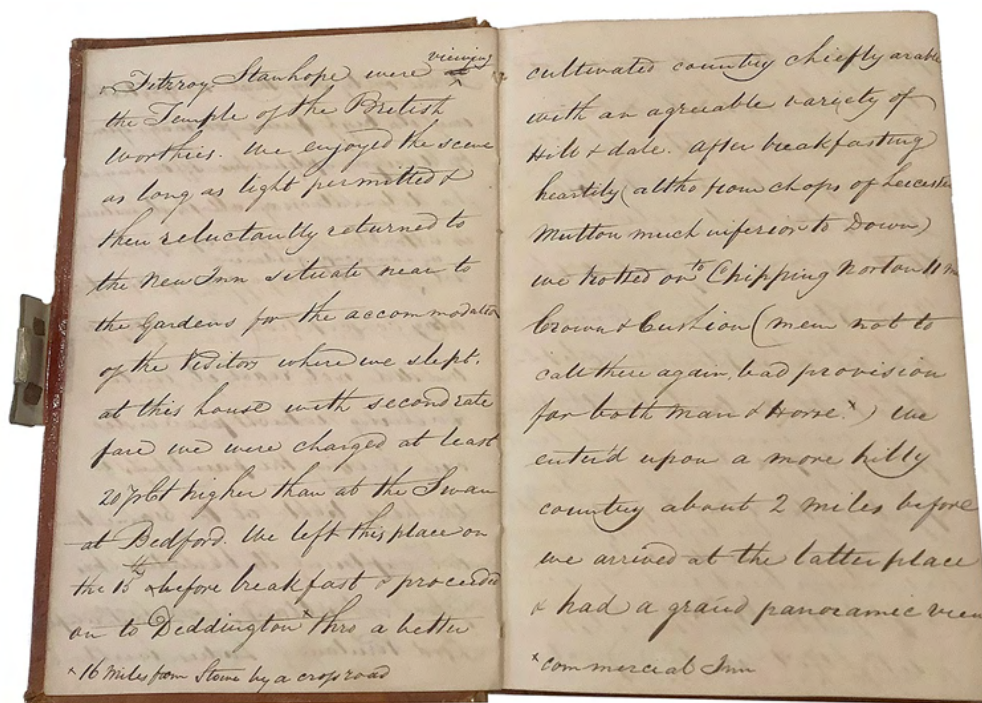 & Fitzroy Stanhope were viewing
the Temple of the British
Worthies. We enjoyed the scene
as long as light permitted &
then reluctantly returned to
the New Inn situate near to
the Gardens for the accommodation
of the Visitors where we slept.
at this house with second rate
fare we were charged at least
20 pCt higher than at the Swan
at Bedford. We left this place on
the 15th before breakfast & proceeded
on to Deddington x thro a better
x 16 miles from Stowe by a cross road
cultivated country chiefly arable
with an agreeable variety of
Hill & dale. After breakfasting
heartily (altho from chops of Leicester
Mutton much inferior to Down)
we trotted on to Chipping Norton 11 m
Crown & Cushion (mem not to
call there again, bad provision
for both Man & Horse. x) We
enter'd upon a more hilly
country about 2 miles before
we arrived at the latter place
& had a grand panoramic view
x Commercial Inn